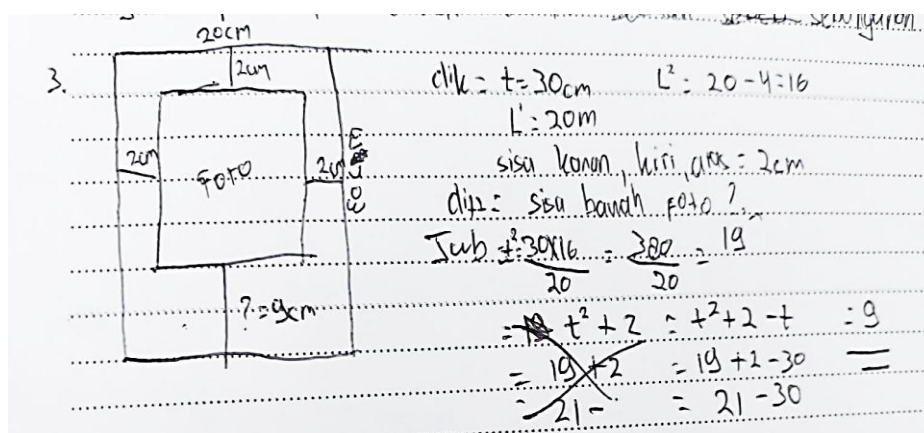 20cm
3.
2cm
2cm
FOTO
2cm
30cm
? = 9cm
dik = t = 30cm L² = 20 - 4 = 16
L¹ = 20m
sisa kanan, kiri, atas = 2cm
dit = sisa bawah foto?
Jwb t² = 30x16 / 20 = 380 / 20 = 19
= t² + 2 = t² + 2 - t = 9
= 19 + 2 = 19 + 2 - 30
= 21 - = 21 - 30